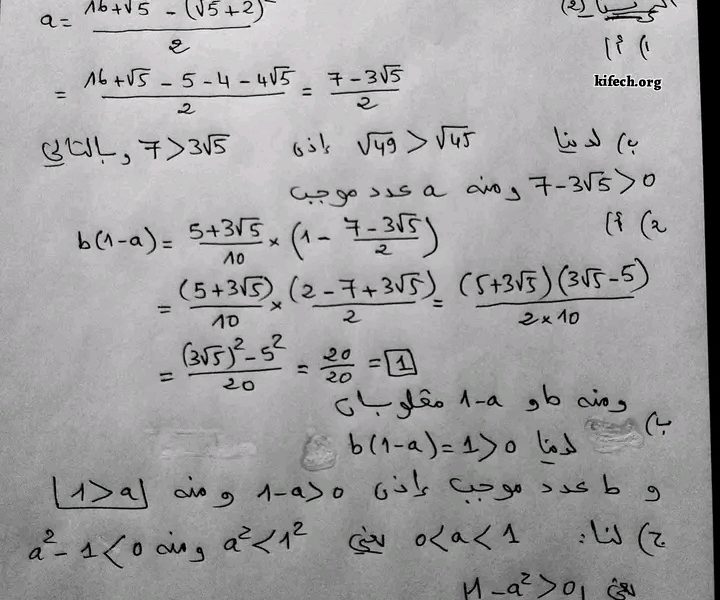 التمرين (2)
1) أ) a = (16+√5 - (√5+2)²)/2
kifech.org
= (16+√5 - 5 - 4 - 4√5)/2 = (7-3√5)/2
ب) لدينا √49 > √45 إذن 7 > 3√5 وبالتالي
7-3√5 > 0 ومنه a عدد موجب
2) أ) b(1-a) = (5+3√5)/10 × (1 - (7-3√5)/2)
= (5+3√5)/10 × (2-7+3√5)/2 = (5+3√5)(3√5-5)/(2×10)
= ((3√5)²-5²)/20 = 20/20 = 1
ومنه b و 1-a مقلوبان
ب) لدينا b(1-a)=1>0
و b عدد موجب إذن 1-a>0 ومنه 1>a
ج) لنا: 0<a<1 يعني a²<1² ومنه a²-1<0
يعني 1-a²>0